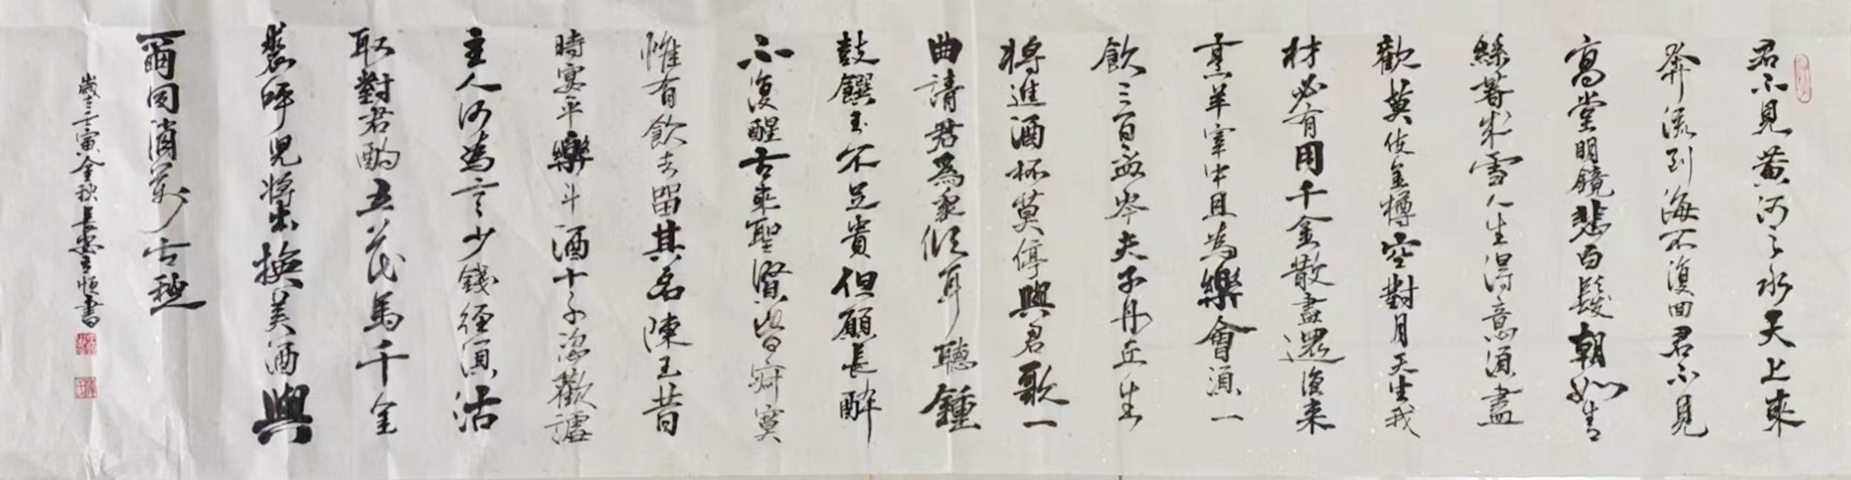 君不見黃河之水天上來
奔流到海不復回君不見
高堂明鏡悲白髮朝如青
絲暮成雪人生得意須盡
歡莫使金樽空對月天生我
材必有用千金散盡還復来
烹羊宰牛且為樂會須一
飲三百盃岑夫子丹丘生
將進酒杯莫停與君歌一
曲請君為我傾耳聽鍾
鼓饌玉不足貴但願長醉
不復醒古來聖賢皆寂寞
惟有飲者留其名陳王昔
時宴平樂斗酒十千恣歡謔
主人何為言少錢徑須沽
取對君酌五花馬千金
裘呼兒將出換美酒與
爾同消萬古愁
歲壬寅金秋長安恒書